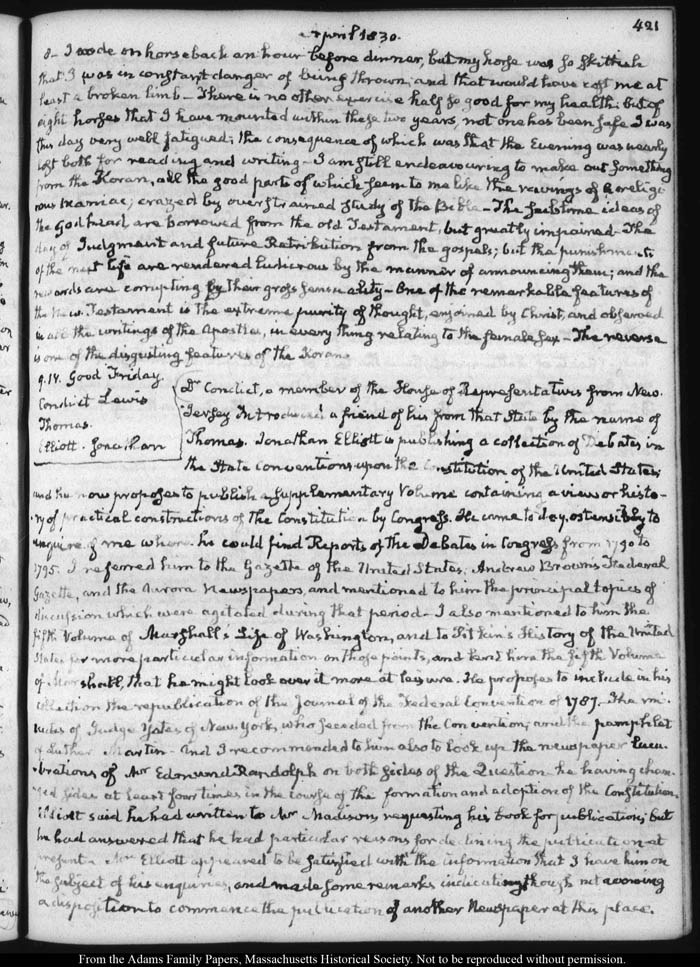 421
April 1830.
8- I rode on horseback an hour before dinner, but my horse was so skittish
that I was in constant danger of being thrown, and that would have cost me at
least a broken limb- There is no other exercise half so good for my health; but of
eight horses that I have mounted within these two years, not one has been safe I was
this day very well fatigued; the consequence of which was that the Evening was nearly
lost both for reading and writing- I am still endeavouring to make out something
from the Koran, all the good parts of which seem to me like the ravings of a religi-
ous maniac; crazed by over strained study of the Bible- The ideas of
the Godhead are borrowed from the old Testament, but greatly impaired- The
day of Judgment and future Retribution from the gospels; but the punishments
of the next life are rendered ludicrous by the manner of announcing them; and the
rewards are corrupting by their gross sensuality- One of the remarkable features of
the New Testament is the extreme purity of thought, enjoined by Christ, and observed
in all the writings of the Apostles, in every thing relating to the female sex- The reverse
is one of the disgusting features of the Koran.
9. IV. Good Friday
Condict Lewis
Thomas.
Elliott- Jonathan
Dr Condict, a member of the House of Representatives from New-
Jersey Introduced a friend of his from that State by the name of
Thomas. Jonathan Elliott is publishing a collection of Debates in
the State Conventions upon the Constitution of the United States;
and he now proposes to publish a supplementary Volume containing a view or histo-
ry of practical constructions of the Constitution by Congress. He came to day, ostensibly to
enquire of me where he could find Reports of the Debates in Congress from 1790 to
1795. I referred him to the Gazette of the United States, Andrew Brown's Federal
Gazette, and the Aurora Newspapers, and mentioned to him the principal topics of
discussion which were agitated during that period- I also mentioned to him the
fifth Volume of Marshall's Life of Washington, and to Pitkin's History of the United
States for more particular information on those points, and lent him the fifth Volume
of Marshall, that he might look over it more at leisure. He proposes to include in his
collection the republication of the Journal of the Federal Convention of 1787. The mi-
nutes of Judge Yates of New York, who seceded from the Convention, and the pamphlet
of Luther Martin- And I recommended to him also to look up the newspaper lucu-
brations of Mr Edmund Randolph on both sides of the Question he having chan-
ged sides at least four times in the course of the formation and adoption of the Constitution.
Elliott said he had written to Mr Madison, requesting his book for publication; but
he had answered that he had particular reasons for declining the publication at
present- Mr Elliott appeared to be satisfied with the information that I gave him on
the subject of his enquiries, and made some remarks indicating though not avowing
a disposition to commence the publication of another Newspaper at this place.
From the Adams Family Papers, Massachusetts Historical Society. Not to be reproduced without permission.